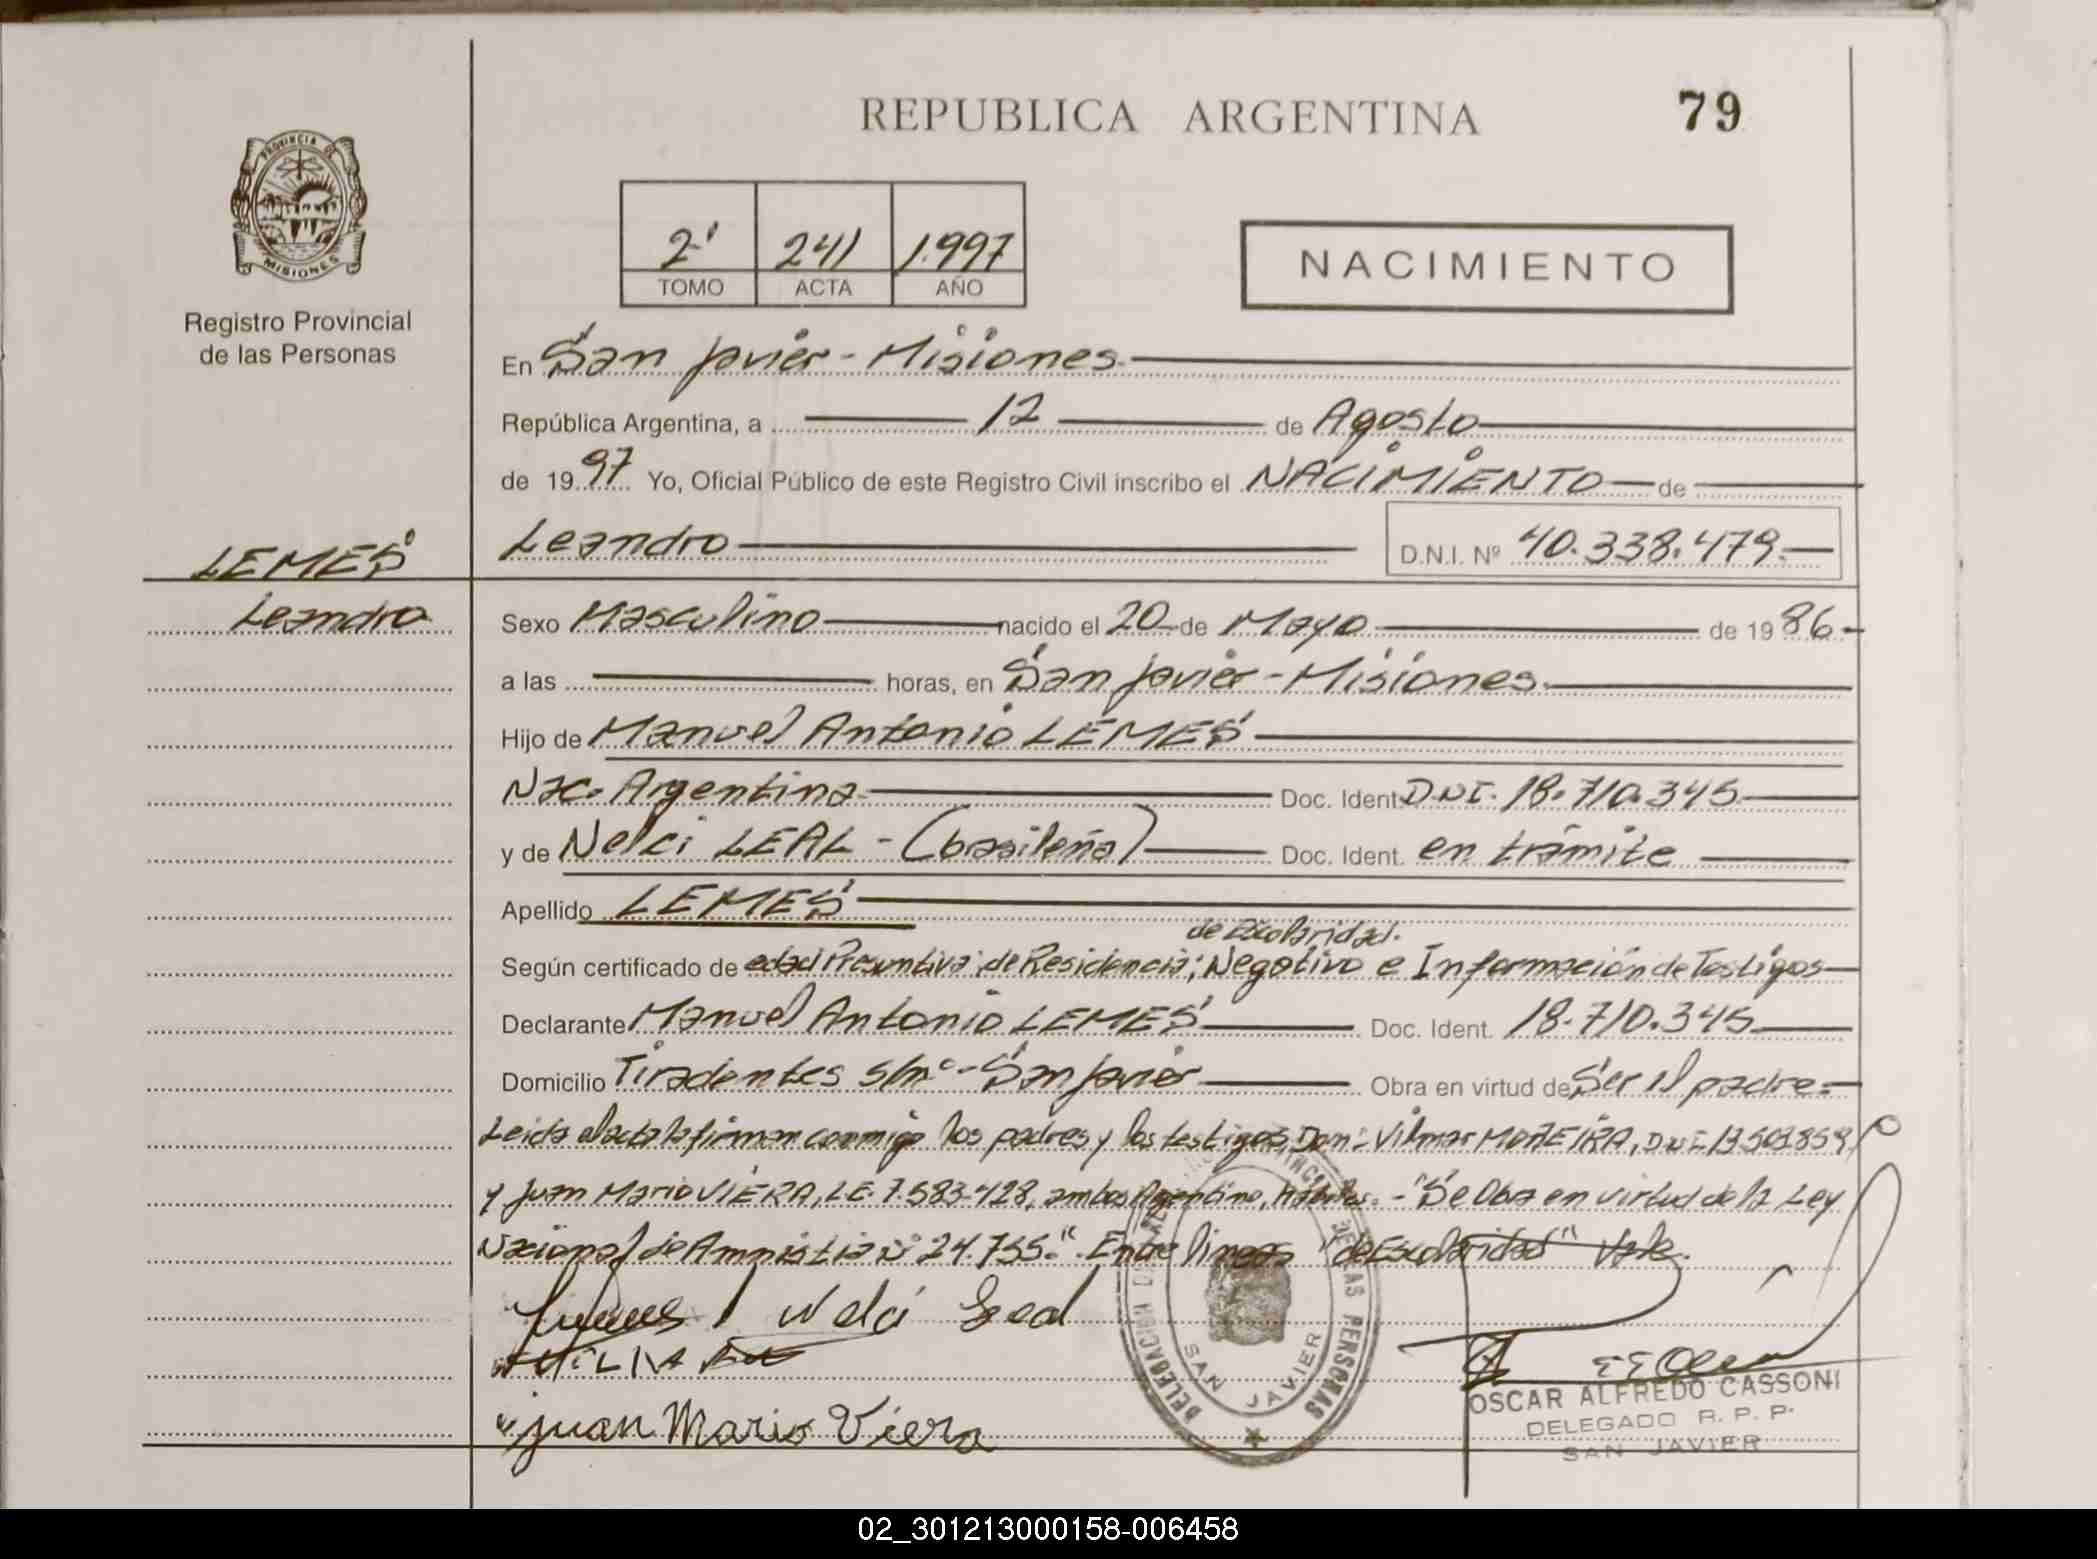 REPUBLICA ARGENTINA
79
PROVINCIA DE
MISIONES
Registro Provincial
de las Personas
2' 241 1.997
TOMO ACTA AÑO
NACIMIENTO
En San Javier - Misiones.
República Argentina, a 12 de Agosto
de 1997 Yo, Oficial Público de este Registro Civil inscribo el NACIMIENTO de
LEMES
Leandro
Leandro D.N.I. Nº 40.338.479.
Sexo Masculino nacido el 20 de Mayo de 1986
a las horas, en San Javier - Misiones.
Hijo de Manuel Antonio LEMES
Nac. Argentina Doc. Ident. DNI. 18.710.345
y de Nelci LEAL - (brasileña) Doc. Ident. en trámite
Apellido LEMES
de Escolaridad.
Según certificado de edad Presuntiva; de Residencia; Negativo e Información de Testigos
Declarante Manuel Antonio LEMES Doc. Ident. 18.710.345
Domicilio Tiradentes s/nº - San Javier Obra en virtud de Ser el padre=
Leida el acta la firman conmigo los padres y los testigos Don: Vilmar MOREIRA, DNI. 13.503.859
y Juan Mario VIERA, L.E. 7.583.428, ambos Argentino, - "Se Obra en virtud de la Ley
Nacional de Amnistia Nº 24.755." Entre lineas "de Escolaridad" Vale.
Lemes Nelci Leal
Juan Mario Viera
DELEGACION DE LAS PERSONAS
SAN JAVIER
OSCAR ALFREDO CASSONI
DELEGADO R. P. P.
SAN JAVIER
02_301213000158-006458